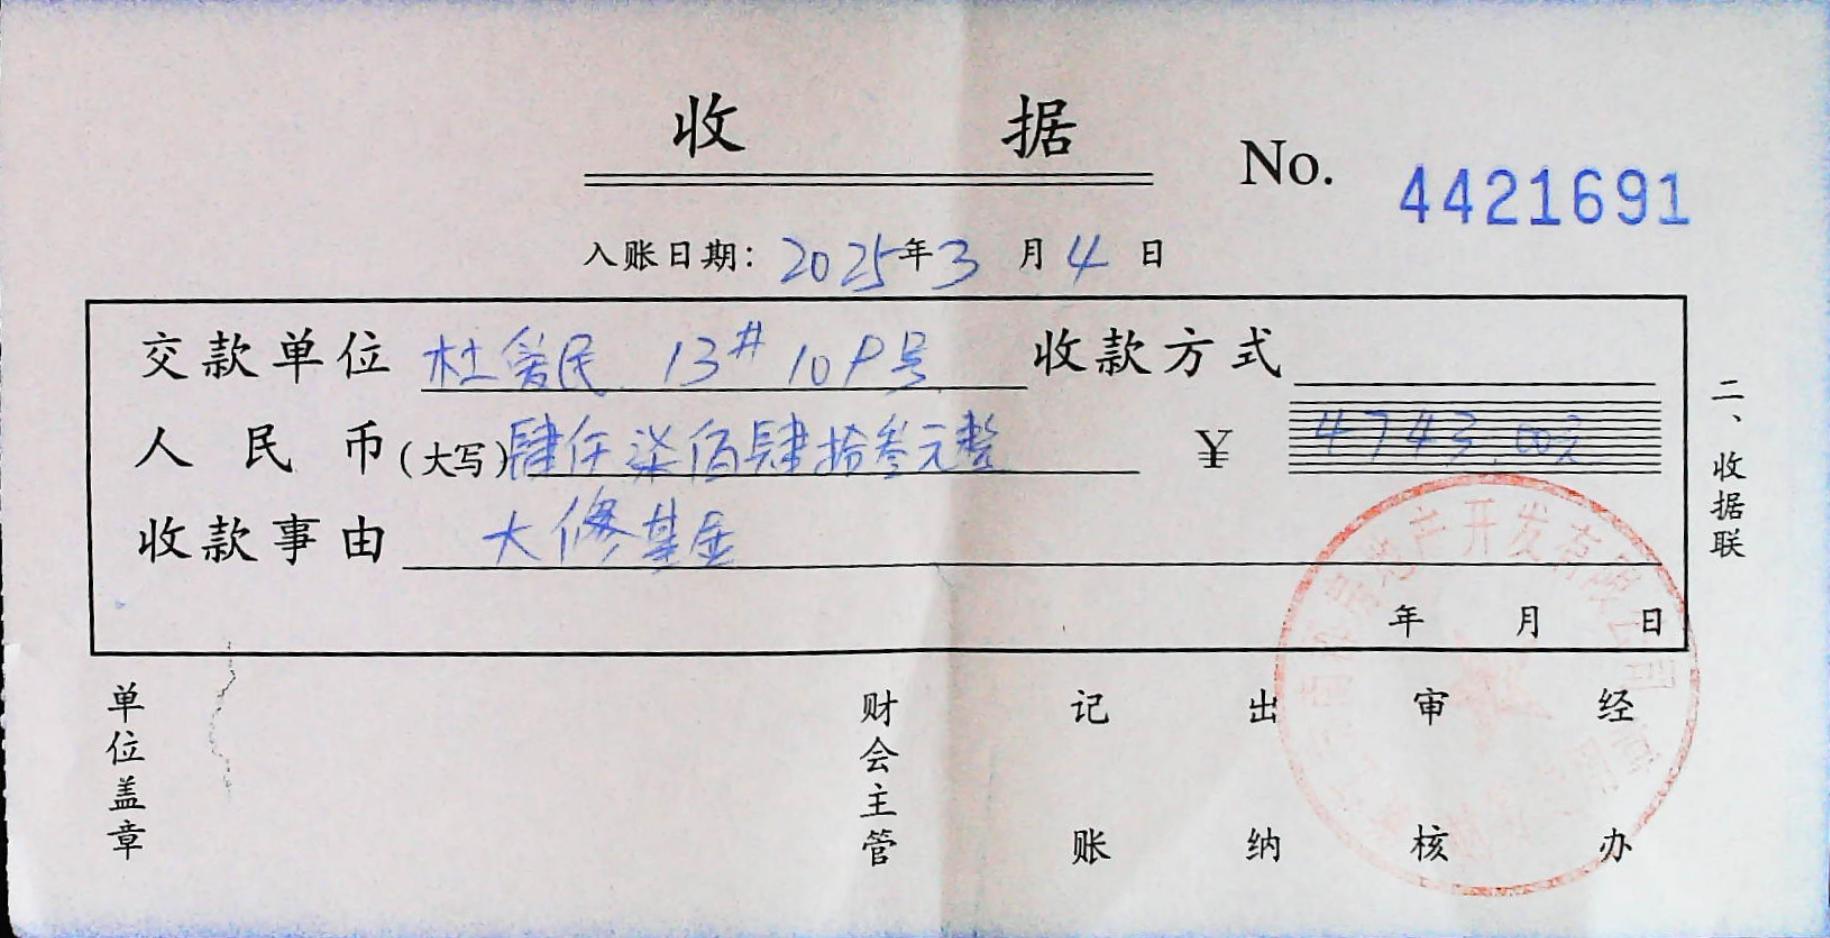 收 据
No. 4421691
入账日期：2025年3月4日
交款单位 杜爱民 13# 109号 收款方式
人民币(大写)肆仟柒佰肆拾叁元整 ¥ 4743.00元
收款事由 大修基金
年 月 日
二、收据联
单位盖章 财会主管 记账 出纳 审核 经办
地产开发有限公司